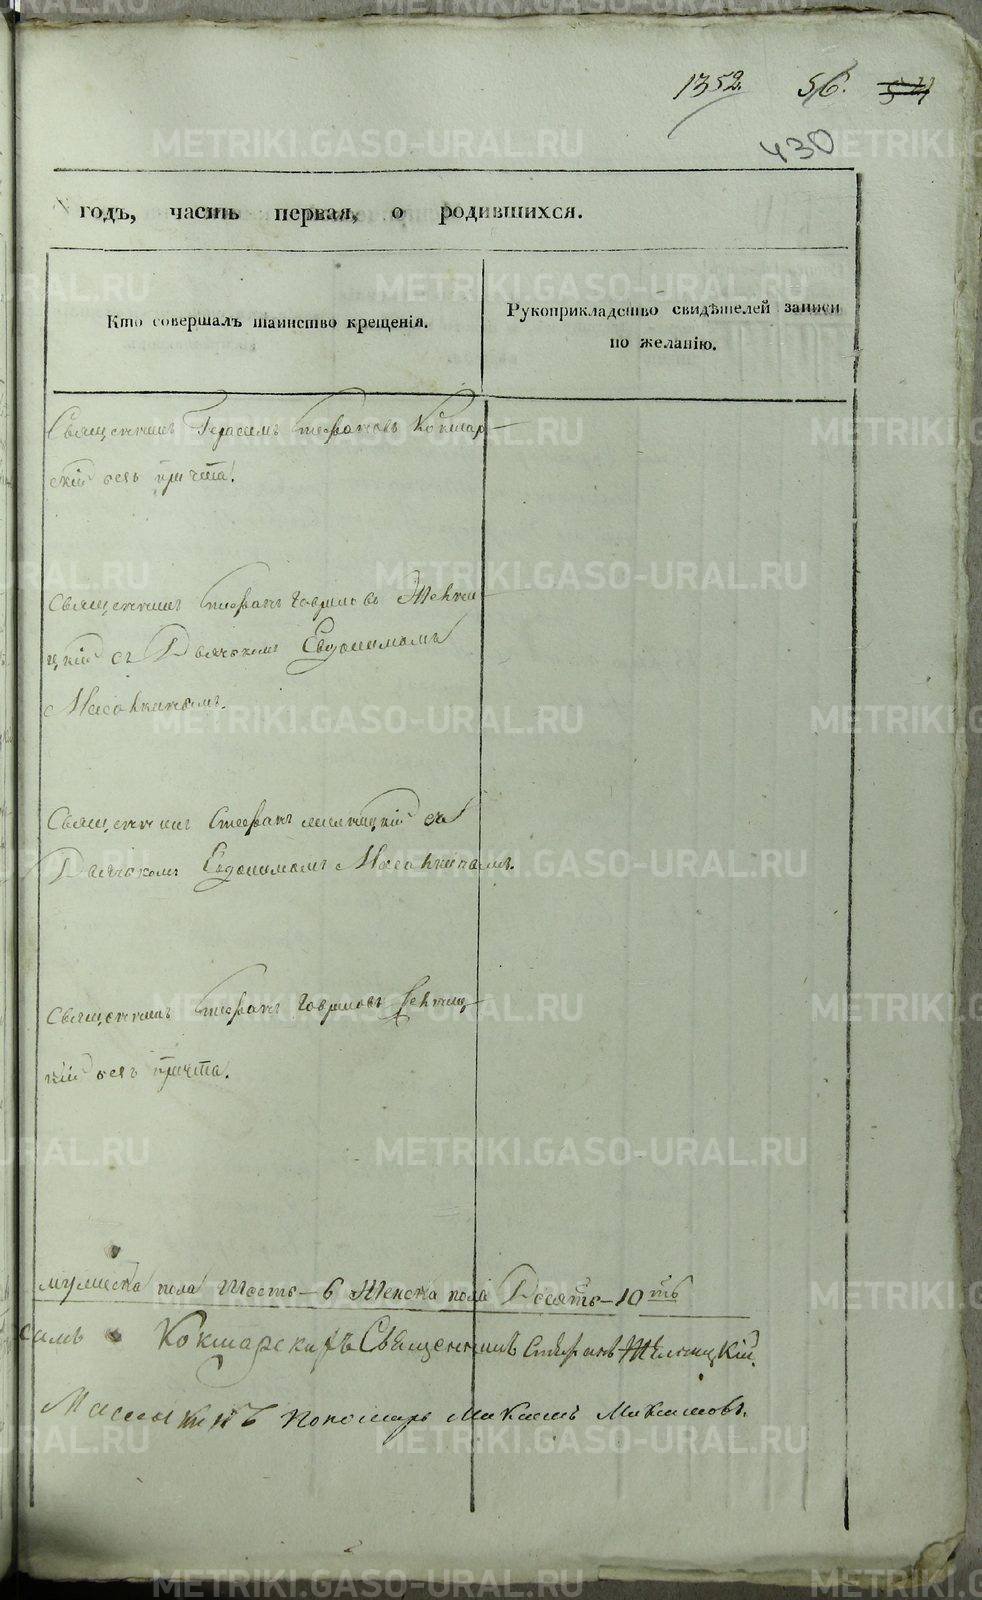 1352. 56. 54
430
годъ, часть первая, о родившихся.
Кто совершалъ таинство крещенія.
Рукоприкладство свидѣтелей записи
по желанію.
Священникъ Герасимъ Стефановъ Кокшар-
скій безъ причта.
Священникъ Стефанъ Гавриловъ
цкій съ Дьячкомъ Евдокимомъ
Масалкинымъ.
Священникъ Стефанъ съ
Дьячкомъ Евдокимомъ Масалкинымъ.
Священникъ Стефанъ Гавриловъ
кій безъ причта.
мужеска пола шесть - 6 Женска пола Десять - 10ть
самъ Кокшарскихъ Священникъ Стефанъ
Пономарь Максимъ Максимовъ.
METRIKI.GASO-URAL.RU